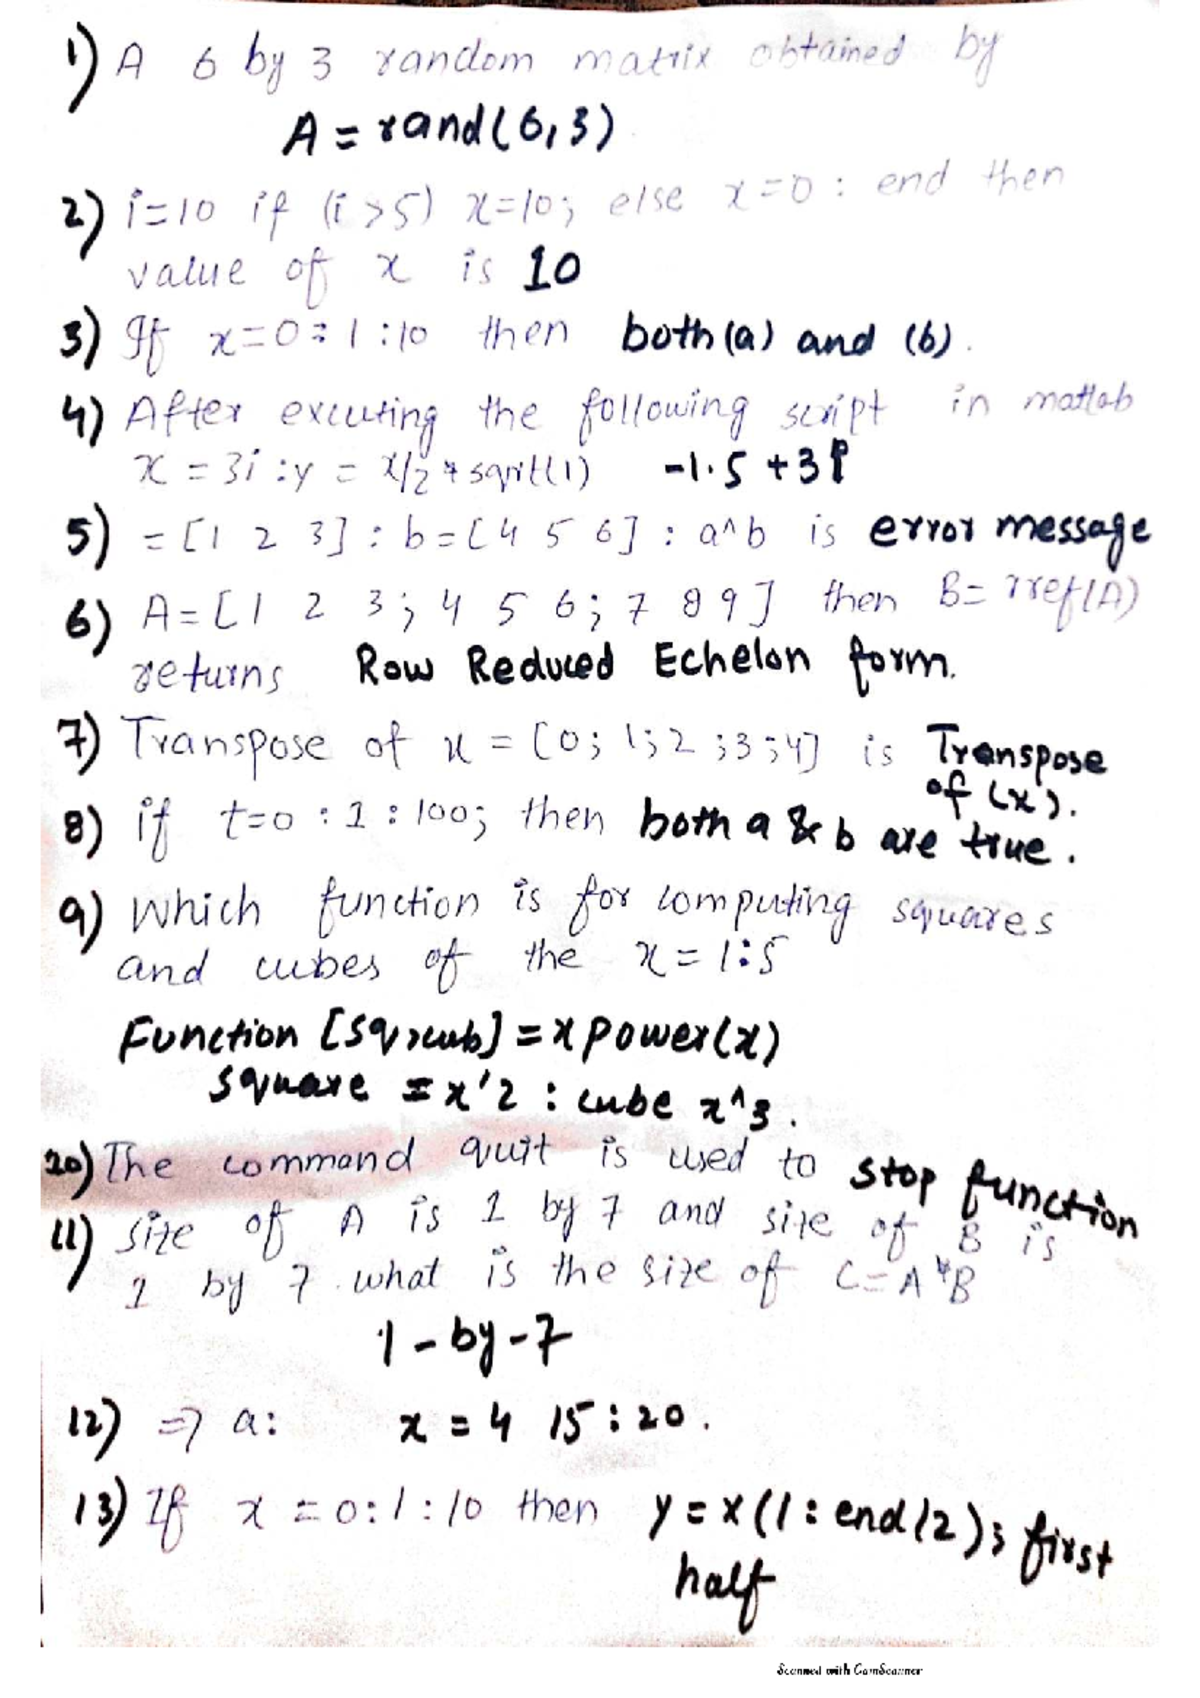 1) A 6 by 3 random matrix obtained by
A = rand(6,3)
2) i=10 if (i >5) x=10; else x=0 : end then
value of x is 10
3) If x=0:1:10 then both (a) and (b).
4) After excuting the following script in matlab
x = 3i :y = x/2 + sqrt(1) -1.5 + 3i
5) = [1 2 3] : b=[4 5 6] : a^b is error message
6) A=[1 2 3; 4 5 6; 7 8 9] then B= rref(A)
returns Row Reduced Echelon form.
7) Transpose of x = [0; 1; 2 ;3 ;4] is Transpose
of (x).
8) if t=0 : 1 : 100; then both a & b are true.
9) Which function is for computing squares
and cubes of the x = 1:5
Function [sq,cub] = x power(x)
square = x'2 : cube x^3.
10) The command quit is used to stop function
11) size of A is 1 by 7 and size of B is
1 by 7 . what is the size of C=A*B
1-by-7
12) => a: x = 4 15 : 20.
13) If x = 0:1:10 then y = x (1 : end/2); first
half
Scanned with CamScanner